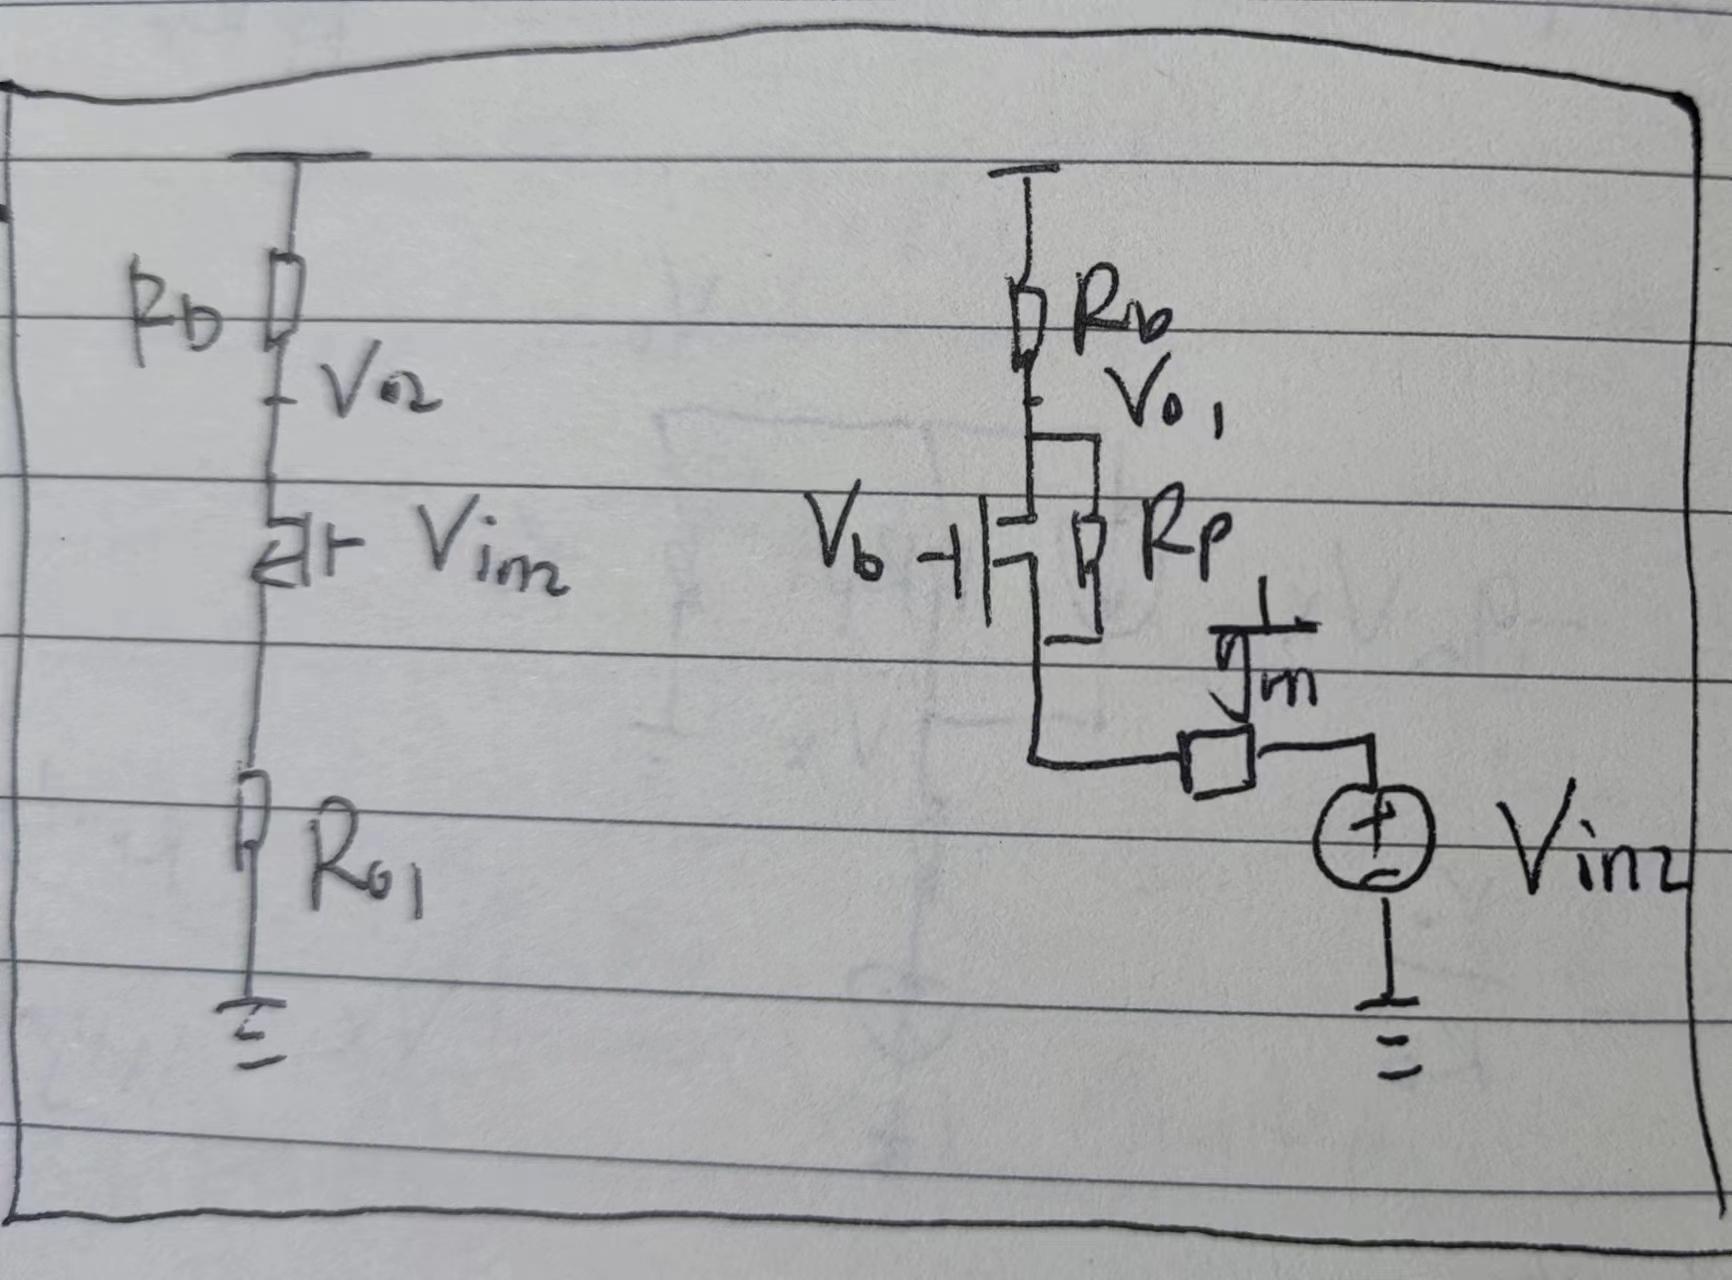 RD
Vo2
Vin2
Ro1
RD
Vo1
Vb
RP
1
gm
+
-
Vin2